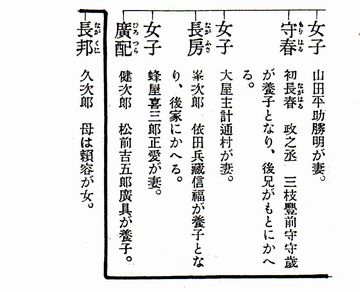 女子 山田平助勝明が妻。
守春 もりはる 初長春 ながはる 政之丞 三枝豐前守守歳
が養子となり、後兄がもとにかへ
る。
女子 大屋主計通村が妻。
長房 ながふさ 峯次郎 依田兵藏信福が養子とな
り、後家にかへる。
女子 蜂屋喜三郎正愛が妻。
廣配 ひろつら 健次郎 松前吉五郎廣具が養子。
長邦 ながくに 久次郎 母は頼容が女。